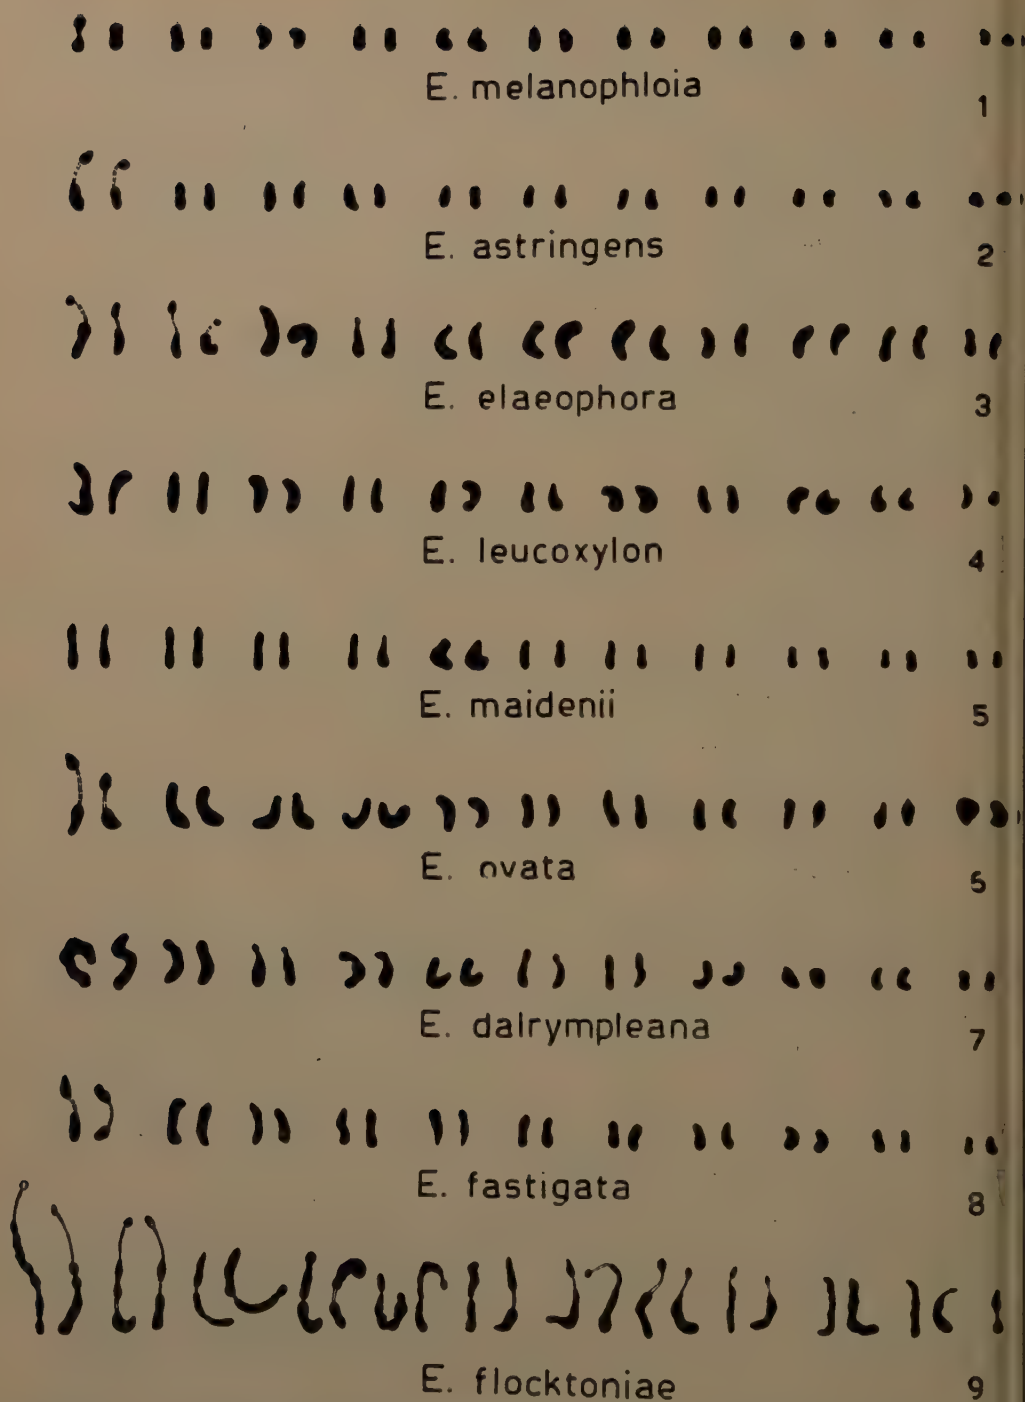 E. melanophloia
1
E. astringens
2
E. elaeophora
3
E. leucoxylon
4
E. maidenii
5
E. ovata
6
E. dalrympleana
7
E. fastigata
8
E. flocktoniae
9